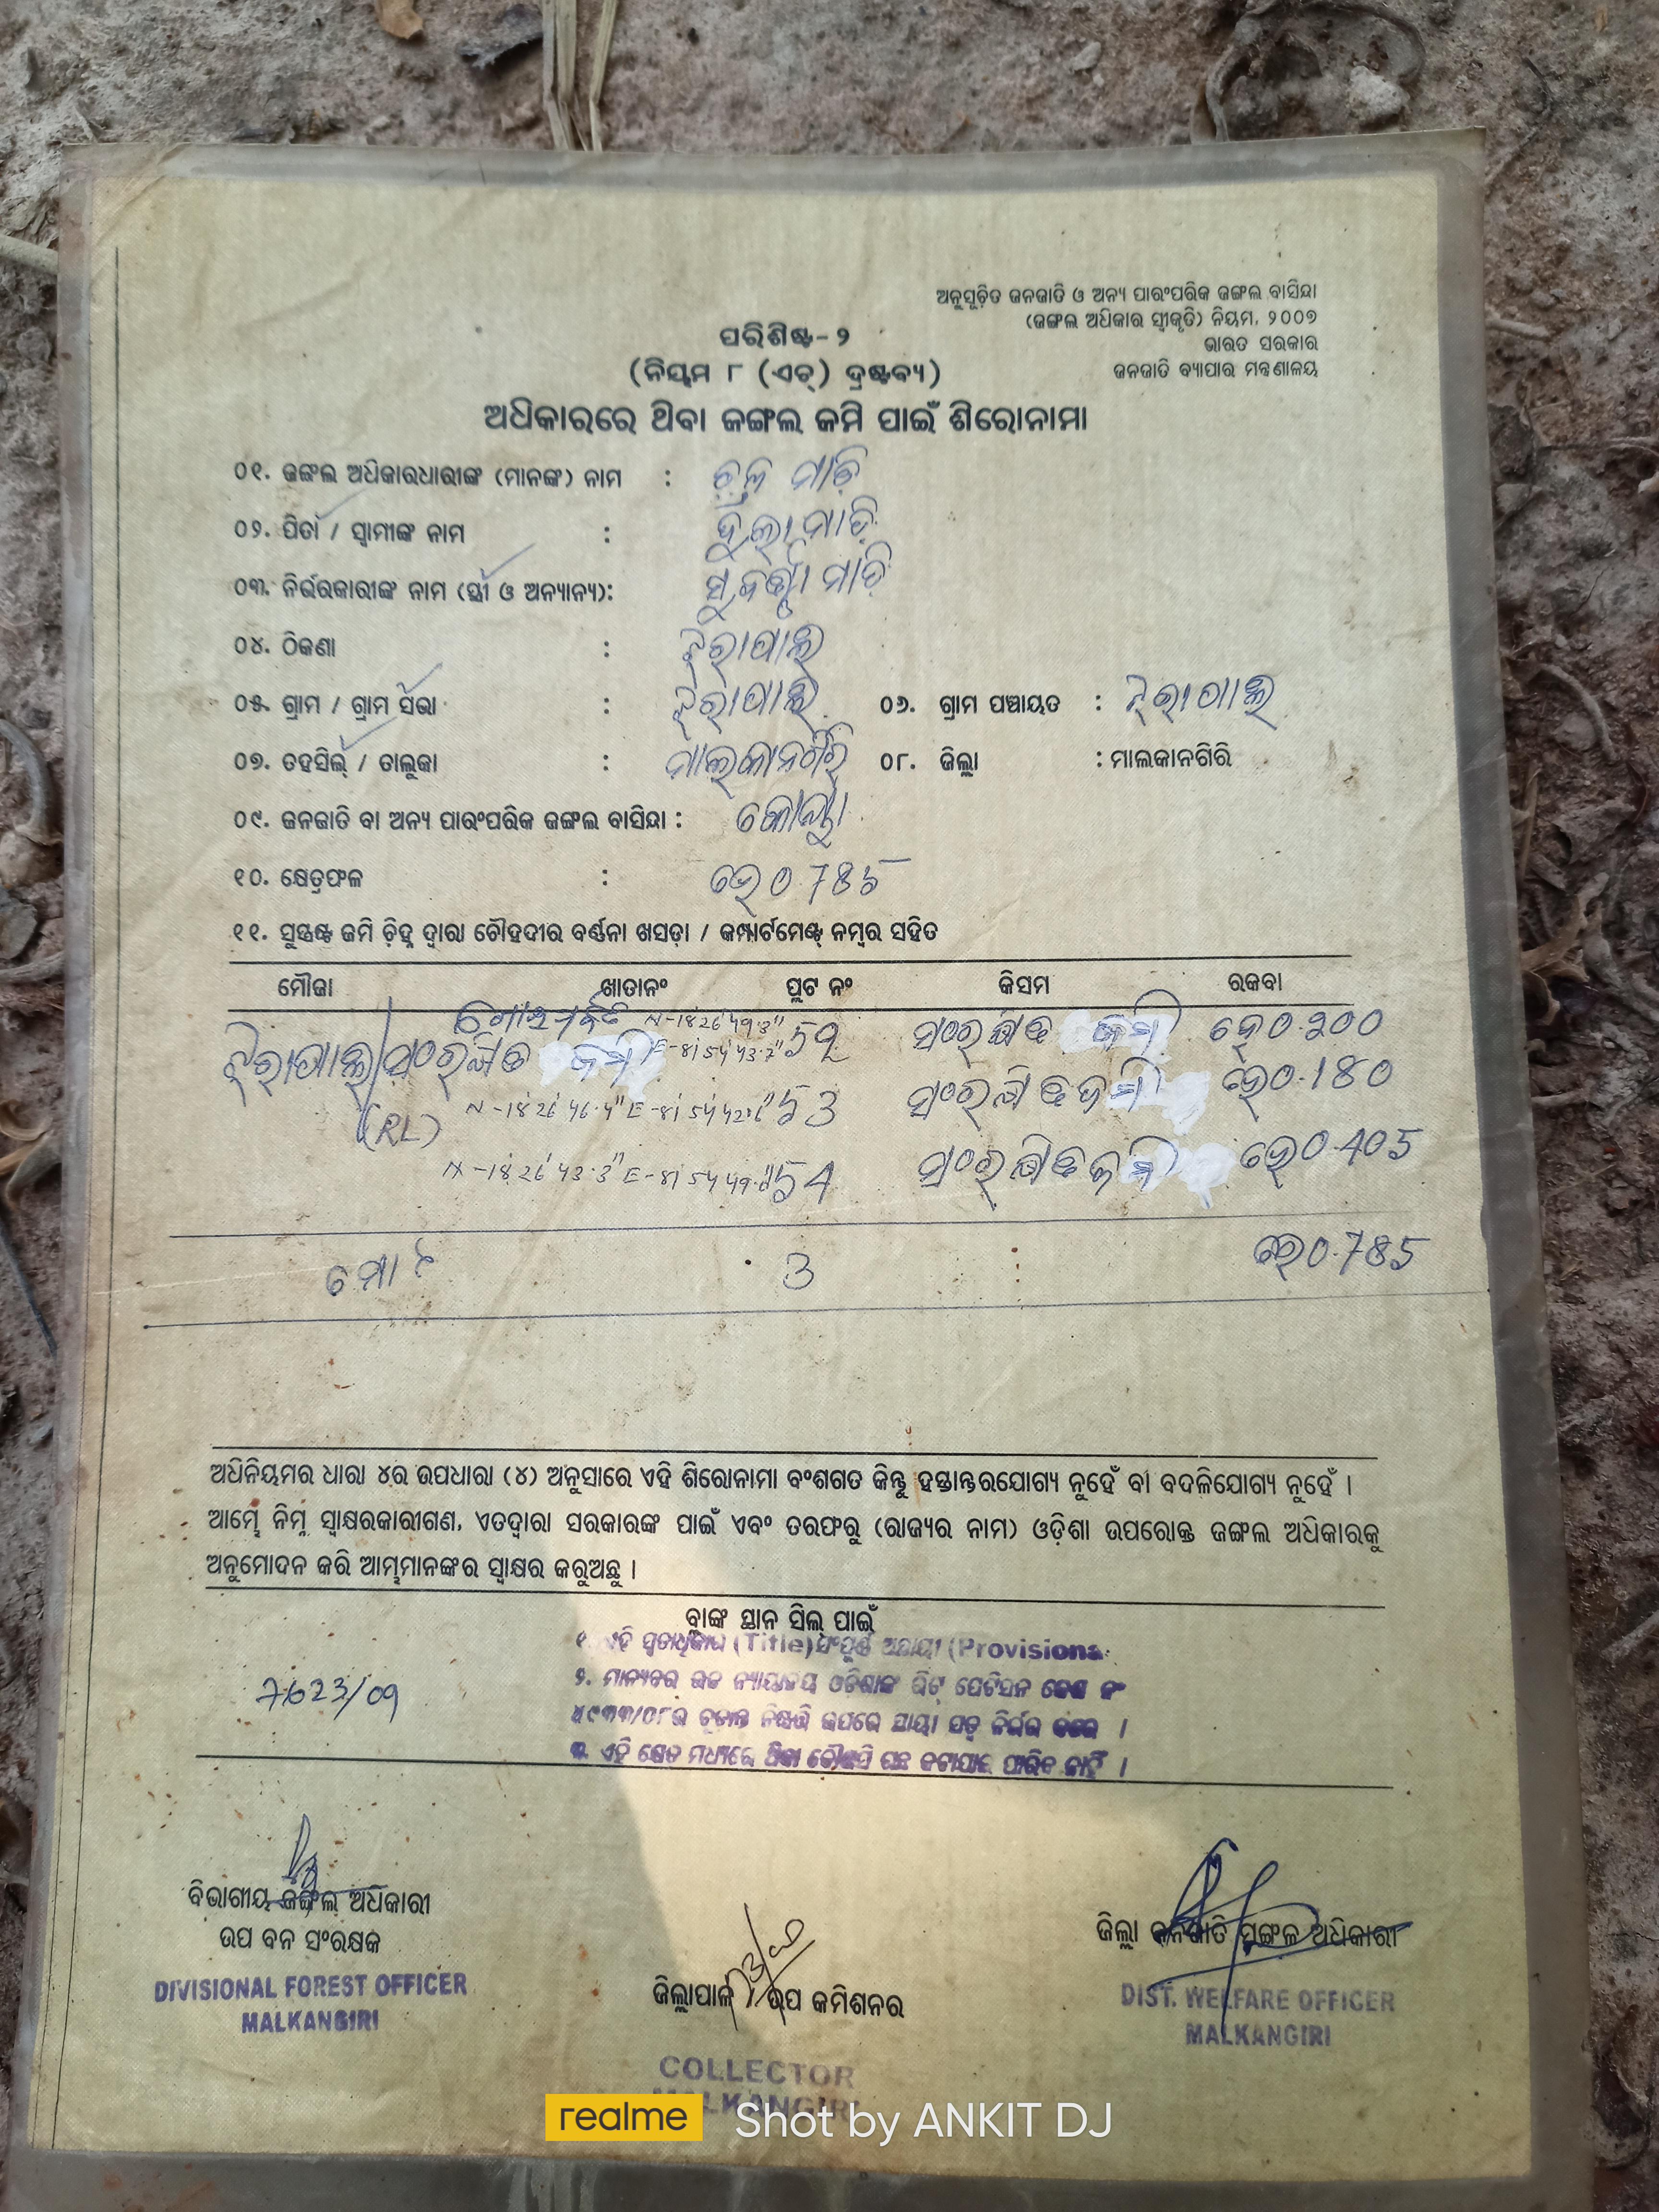 ଅନୁସୂଚିତ ଜନଜାତି ଓ ଅନ୍ୟ ପାରଂପରିକ ଜଙ୍ଗଲ ବାସିନ୍ଦା
(ଜଙ୍ଗଲ ଅଧିକାର ସ୍ୱୀକୃତି) ନିୟମ, ୨୦୦୭
ଭାରତ ସରକାର
ଜନଜାତି ବ୍ୟାପାର ମନ୍ତ୍ରଣାଳୟ
ପରିଶିଷ୍ଟ-୨
(ନିୟମ ୮ (ଏଚ୍) ଦ୍ରଷ୍ଟବ୍ୟ)
ଅଧିକାରରେ ଥିବା ଜଙ୍ଗଲ ଜମି ପାଇଁ ଶିରୋନାମା
୦୧. ଜଙ୍ଗଲ ଅଧିକାରଧାରୀଙ୍କ (ମାନଙ୍କ) ନାମ : ମାଡ଼ି
୦୨. ପିତା / ସ୍ୱାମୀଙ୍କ ନାମ : ମାଡ଼ି
୦୩. ନିର୍ଭରକାରୀଙ୍କ ନାମ (ସ୍ତ୍ରୀ ଓ ଅନ୍ୟାନ୍ୟ): ମାଡ଼ି
୦୪. ଠିକଣା :
୦୫. ଗ୍ରାମ / ଗ୍ରାମ ସଭା : ୦୬. ଗ୍ରାମ ପଞ୍ଚାୟତ :
୦୭. ତହସିଲ୍ / ତାଲୁକା : ମାଲକାନଗିରି ୦୮. ଜିଲ୍ଲା : ମାଲକାନଗିରି
୦୯. ଜନଜାତି ବା ଅନ୍ୟ ପାରଂପରିକ ଜଙ୍ଗଲ ବାସିନ୍ଦା : କୋୟା
୧୦. କ୍ଷେତ୍ରଫଳ : ହେ 0.785
୧୧. ସୁସ୍ପଷ୍ଟ ଜମି ଚିହ୍ନ ଦ୍ୱାରା ଚୌହଦୀର ବର୍ଣ୍ଣନା ଖସଡ଼ା / କମ୍ପାର୍ଟମେଣ୍ଟ ନମ୍ବର ସହିତ
ମୌଜା ଖାତାନଂ ପ୍ଲଟ ନଂ କିସମ ରକବା
N-18 26' 49.3"
ସଂରକ୍ଷିତ ଜମି E-81 54' 43.7" 52 ସଂରକ୍ଷିତ ଜମି ହେ 0.200
(RL) N-18 26' 46.4" 53 ସଂରକ୍ଷିତ ଜମି ହେ 0.180
N-18 26' 43.3" E-81 54' 54 ସଂରକ୍ଷିତ ଜମି ହେ 0.405
ମୋଟ 3 : ହେ 0.785
ଅଧିନିୟମର ଧାରା ୪ର ଉପଧାରା (୪) ଅନୁସାରେ ଏହି ଶିରୋନାମା ବଂଶଗତ କିନ୍ତୁ ହସ୍ତାନ୍ତରଯୋଗ୍ୟ ନୁହେଁ ବା ବଦଳିଯୋଗ୍ୟ ନୁହେଁ ।
ଆମ୍ଭେ ନିମ୍ନ ସ୍ୱାକ୍ଷରକାରୀଗଣ, ଏତଦ୍ୱାରା ସରକାରଙ୍କ ପାଇଁ ଏବଂ ତରଫରୁ (ରାଜ୍ୟର ନାମ) ଓଡ଼ିଶା ଉପରୋକ୍ତ ଜଙ୍ଗଲ ଅଧିକାରକୁ
ଅନୁମୋଦନ କରି ଆମ୍ଭମାନଙ୍କର ସ୍ୱାକ୍ଷର କରୁଅଛୁ ।
ବ୍ଲାଙ୍କ ସ୍ଥାନ ସିଲ୍ ପାଇଁ
୧. ଏହି (Title) ସଂପୂର୍ଣ୍ଣ ଅସ୍ଥାୟୀ (Provisiona
7623/09
୨. ମାନ୍ୟବର ଉଚ୍ଚ ନ୍ୟାୟାଳୟ ଓଡ଼ିଶାଙ୍କ ରିଟ୍ ପେଟିସନ କେଶ ନଂ
୪୯୩୩/୦୮ର ଚୂଡାନ୍ତ ନିଷ୍ପତ୍ତି ଉପରେ ସ୍ଥାୟୀ ସତ୍ୱ ନିର୍ଭର କରେ ।
୩. ଏହି କ୍ଷେତ ମଧ୍ୟରେ ଥିବା କୌଣସି ଗଛ କଟାଯାଇ ପାରିବ ନାହିଁ ।
ବିଭାଗୀୟ ଜଙ୍ଗଲ ଅଧିକାରୀ
ଉପ ବନ ସଂରକ୍ଷକ
DIVISIONAL FOREST OFFICER
MALKANGIRI
ଜିଲ୍ଲାପାଳ ଉପ କମିଶନର
COLLECTOR
MALKANGIRI
ଜିଲ୍ଲା ଜନଜାତି ମଙ୍ଗଳ ଅଧିକାରୀ
DIST. WELFARE OFFICER
MALKANGIRI
realme Shot by ANKIT DJ